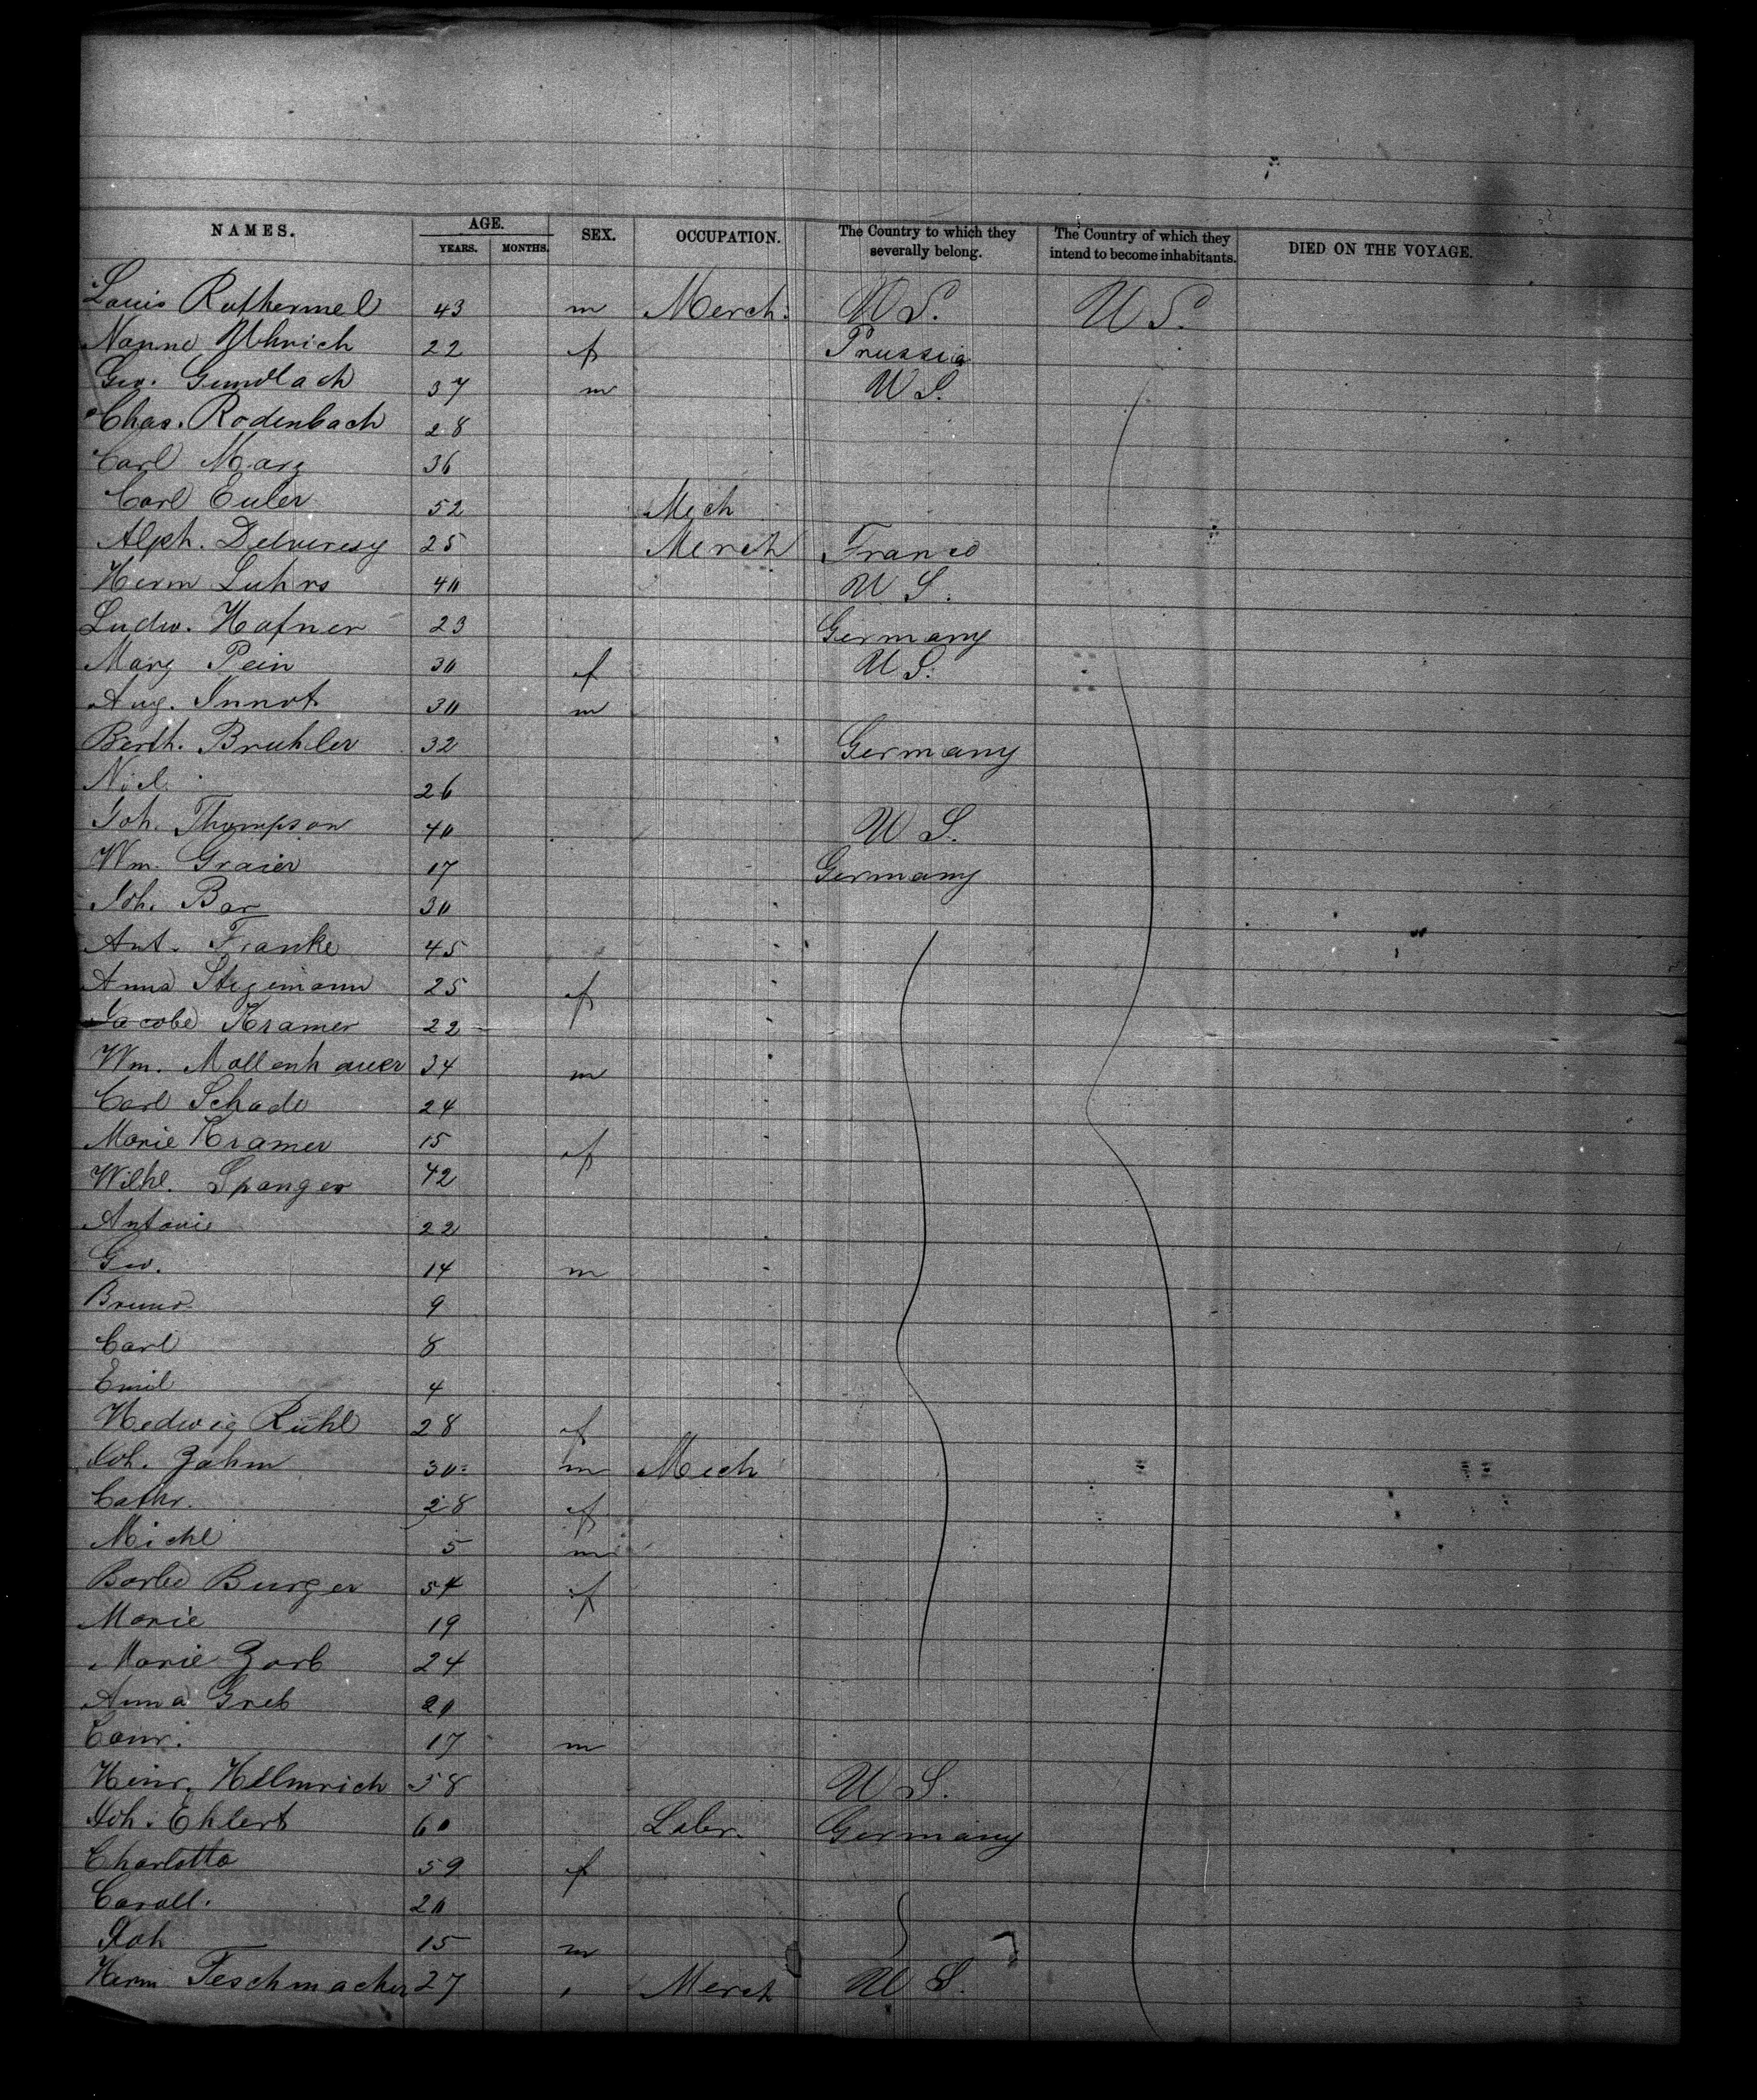 NAMES. AGE. SEX. OCCUPATION. The Country to which they severally belong. The Country of which they intend to become inhabitants. DIED ON THE VOYAGE.
YEARS. MONTHS.
Louis Rothermel 43 m Merch. U S. U S.
Nanne Uhrich 22 f Prussia
Geo. Gundlach 37 m U S.
Chas. Rodenbach 28
Carl Marz 36
Carl Euler 52 Mech
Alph. 25 Merch France
Herm Luhrs 40 U S.
Ludw. Hafner 23 Germany
Marg Pein 30 f U S.
Aug. 30 m
Berth. Bruhler 32 Germany
26
Joh. Thompson 40 U S.
Wm. Graier 17 Germany
Joh. Bar 30
Ant. Franke 45
Anna Stegemann 25 f
Jacobe Kramer 22
Wm. Mollenhauer 34 m
Carl Schade 24
Marie Kramer 15 f
Wilhl. Spanger 42
Antonie 22
Geo. 14 m
Bruno 9
Carl 8
Emil 4
Hedwig Rühl 28 f
Joh. Zahm 30 m Mech
Cathr. 28 f
Michl 5 m
Barbe Burger 54 f
Marie 19
Marie Zorb 24
Anna Greb 20
Conr. 17 m
Heinr. Helmrich 58 U S.
Joh. Ehlert 60 Labr. Germany
Charlotte 59 f
Caroll. 20
Joh 15 m
Herm Teschmacher 27 Merch U S.